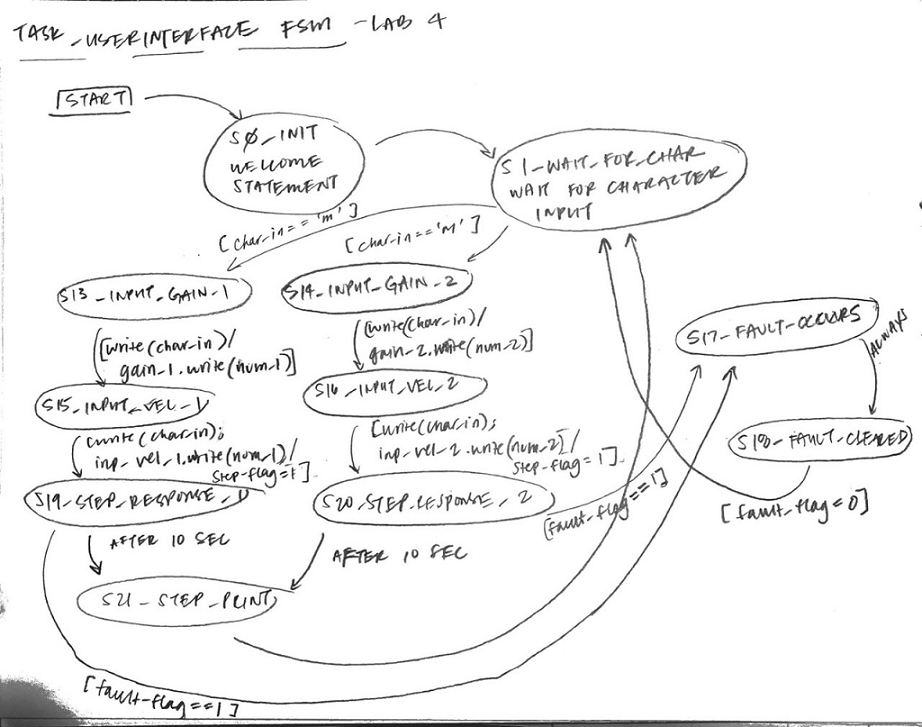 TASK_USERINTERFACE FSM - LAB 4
START
SØ_INIT
WELCOME
STATEMENT
S1_WAIT_FOR_CHAR
WAIT FOR CHARACTER
INPUT
[char_in == 'm']
[char_in == 'M']
S13_INPUT_GAIN_1
S14_INPUT_GAIN_2
[write(char_in)/
gain_1.write(num_1)]
[write(char_in)/
gain_2.write(num_2)]
S17_FAULT_OCCURS
ALWAYS
S15_INPUT_VEL_1
S16_INPUT_VEL_2
[write(char_in);
inp_vel_1.write(num_1)/
step-flag=1].
[write(char_in);
inp_vel_2.write(num_2)/
step-flag=1].
S18_FAULT_CLEARED
[fault_flag=0]
S19_STEP_RESPONSE_1
S20_STEP_RESPONSE_2
[fault_flag==1]
AFTER 10 SEC
AFTER 10 SEC
S21_STEP_PRINT
[fault-flag==1]